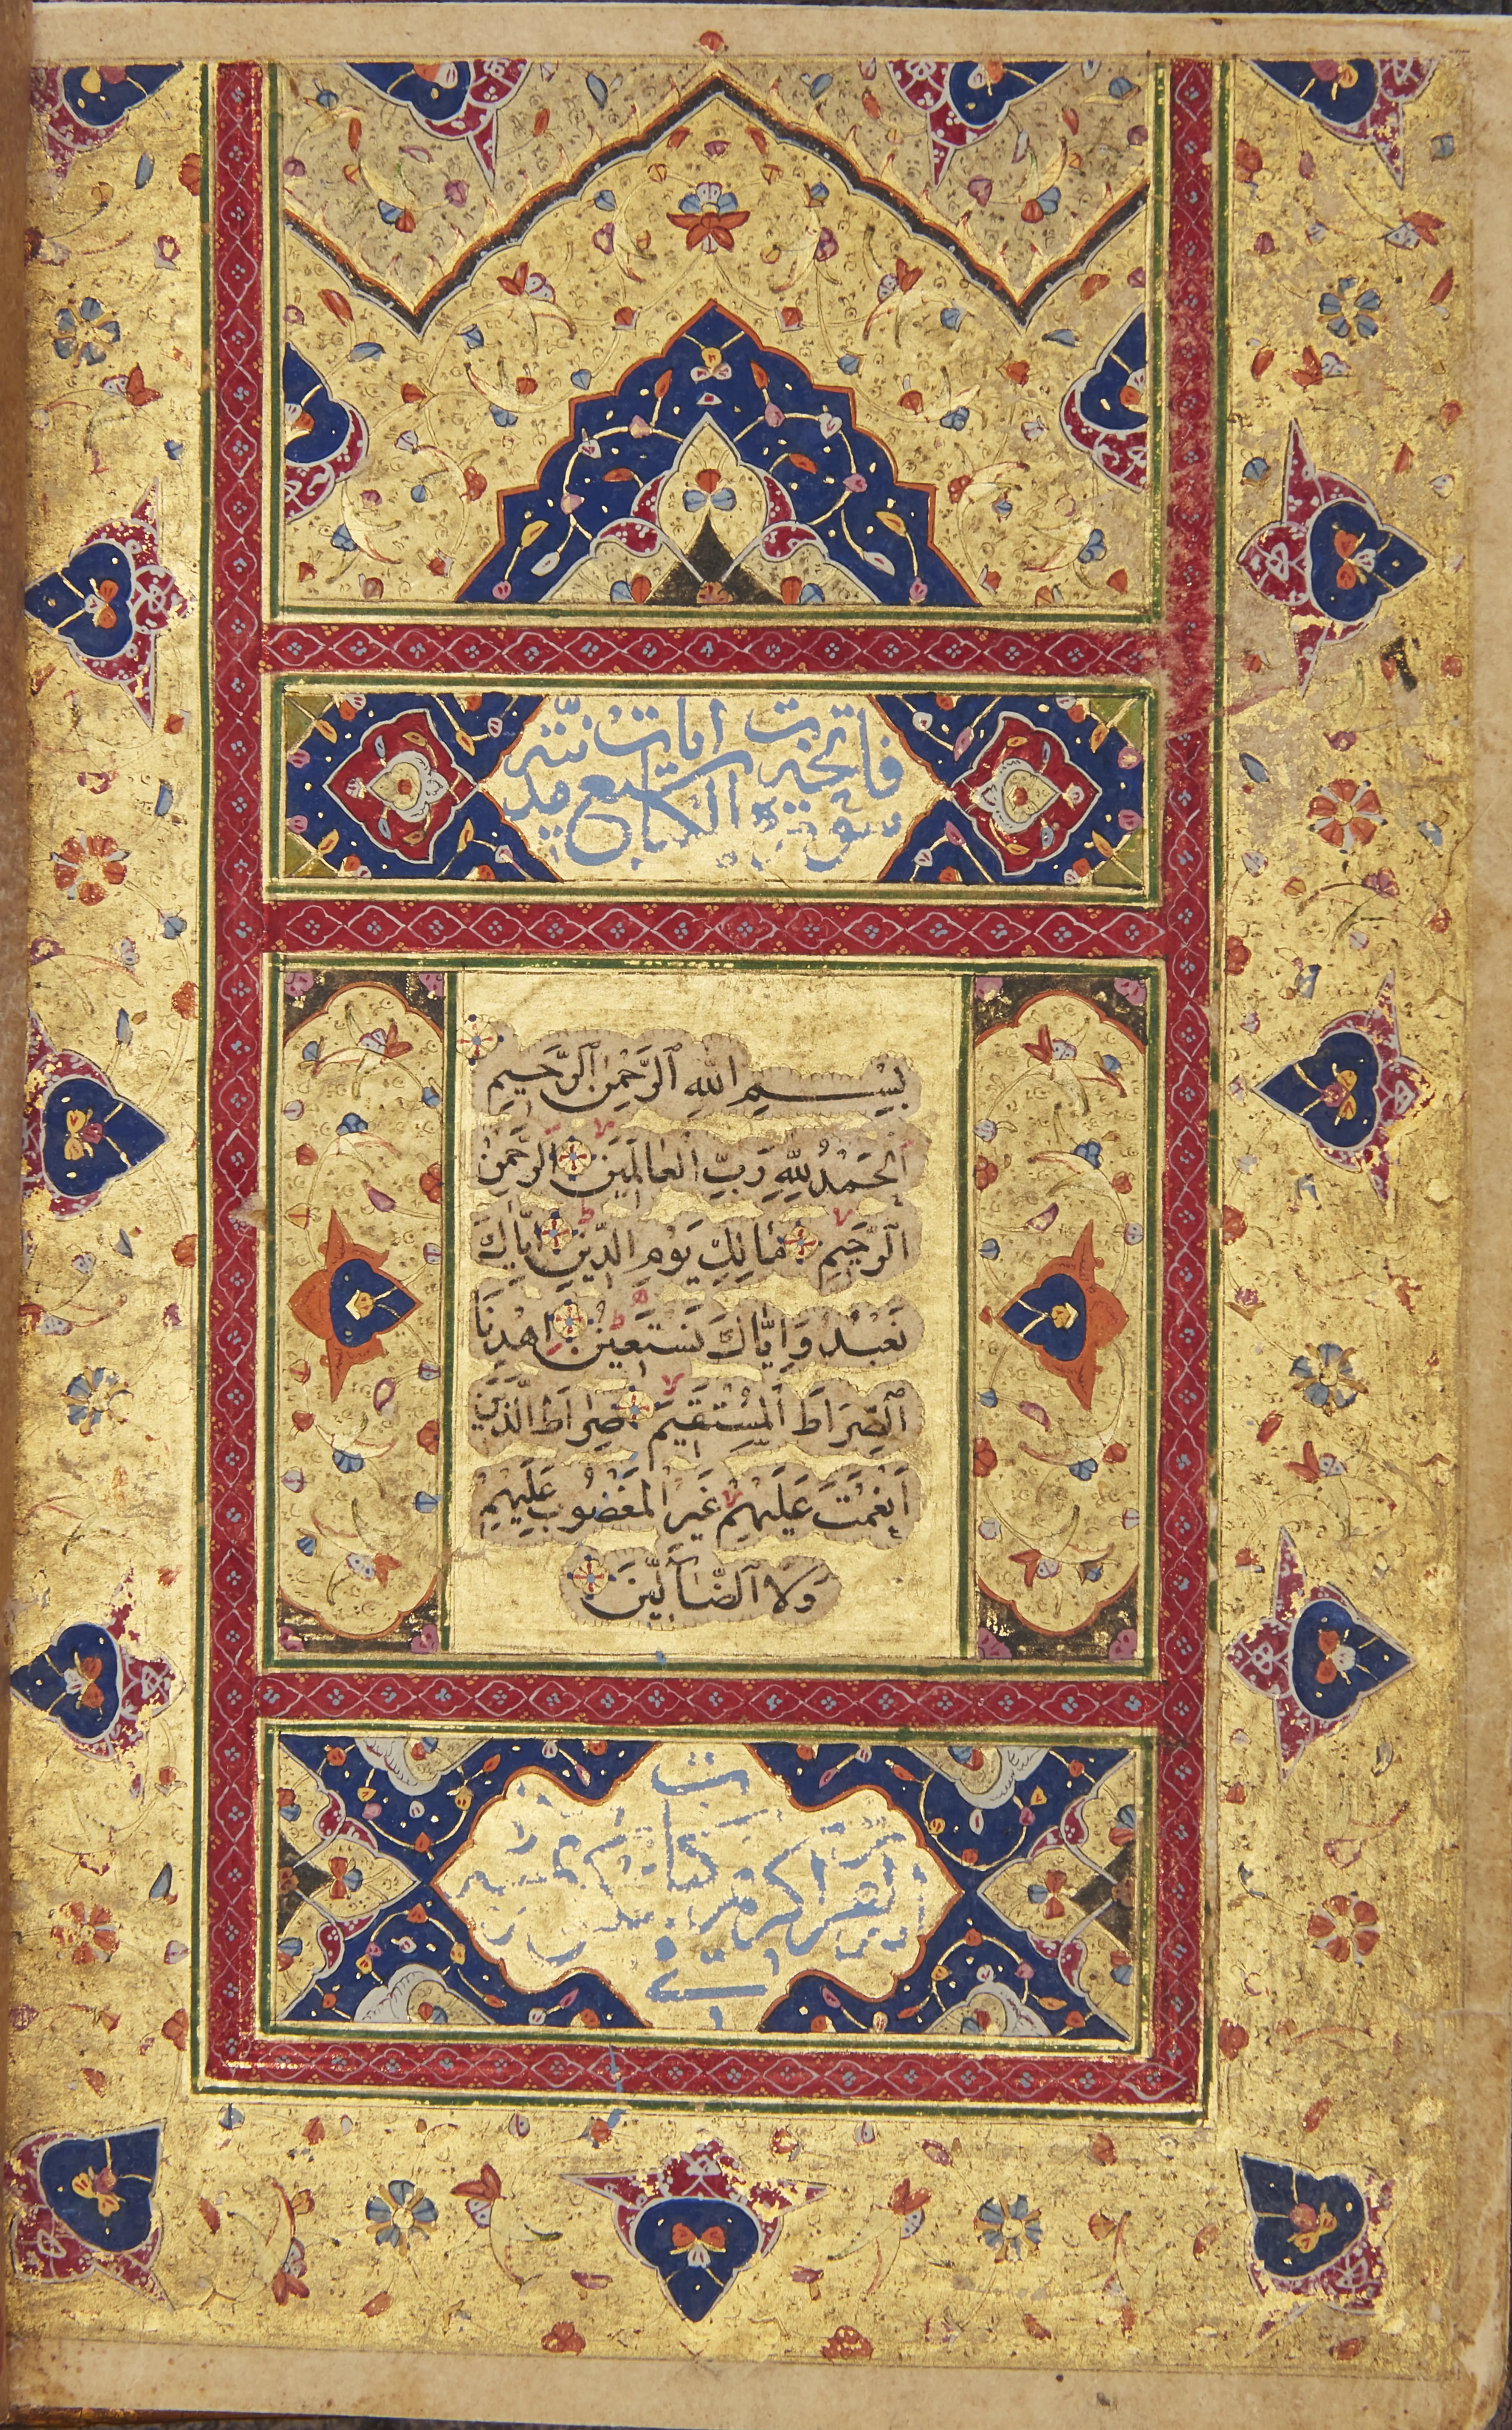 سورة فاتحة الكتاب سبع ايات مدنية
بِسْمِ اللهِ ٱلرَّحْمٰنِ ٱلرَّحِيمِ
اَلْحَمْدُ لِلّٰهِ رَبِّ الْعَالَمِينَ الرَّحْمٰنِ
ٱلرَّحِيمِ مَالِكِ يَوْمِ الدِّينِ اِيَّاكَ
نَعْبُدُ وَاِيَّاكَ نَسْتَعِينُ اِهْدِنَا
ٱلصِّرَاطَ الْمُسْتَقِيمَ صِرَاطَ الَّذِينَ
اَنْعَمْتَ عَلَيْهِمْ غَيْرِ الْمَغْضُوبِ عَلَيْهِمْ
وَلَا الضَّآلِّينَ
لقران كريم في كتاب